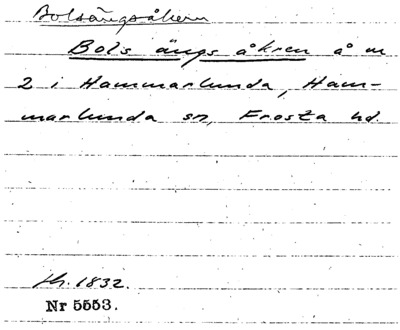 Bolsängsåkern
Bols ängs åkren å n
2 i Hammarlunda, Ham-
marlunda sn, Frosta hd.
1832.
Nr 5553.